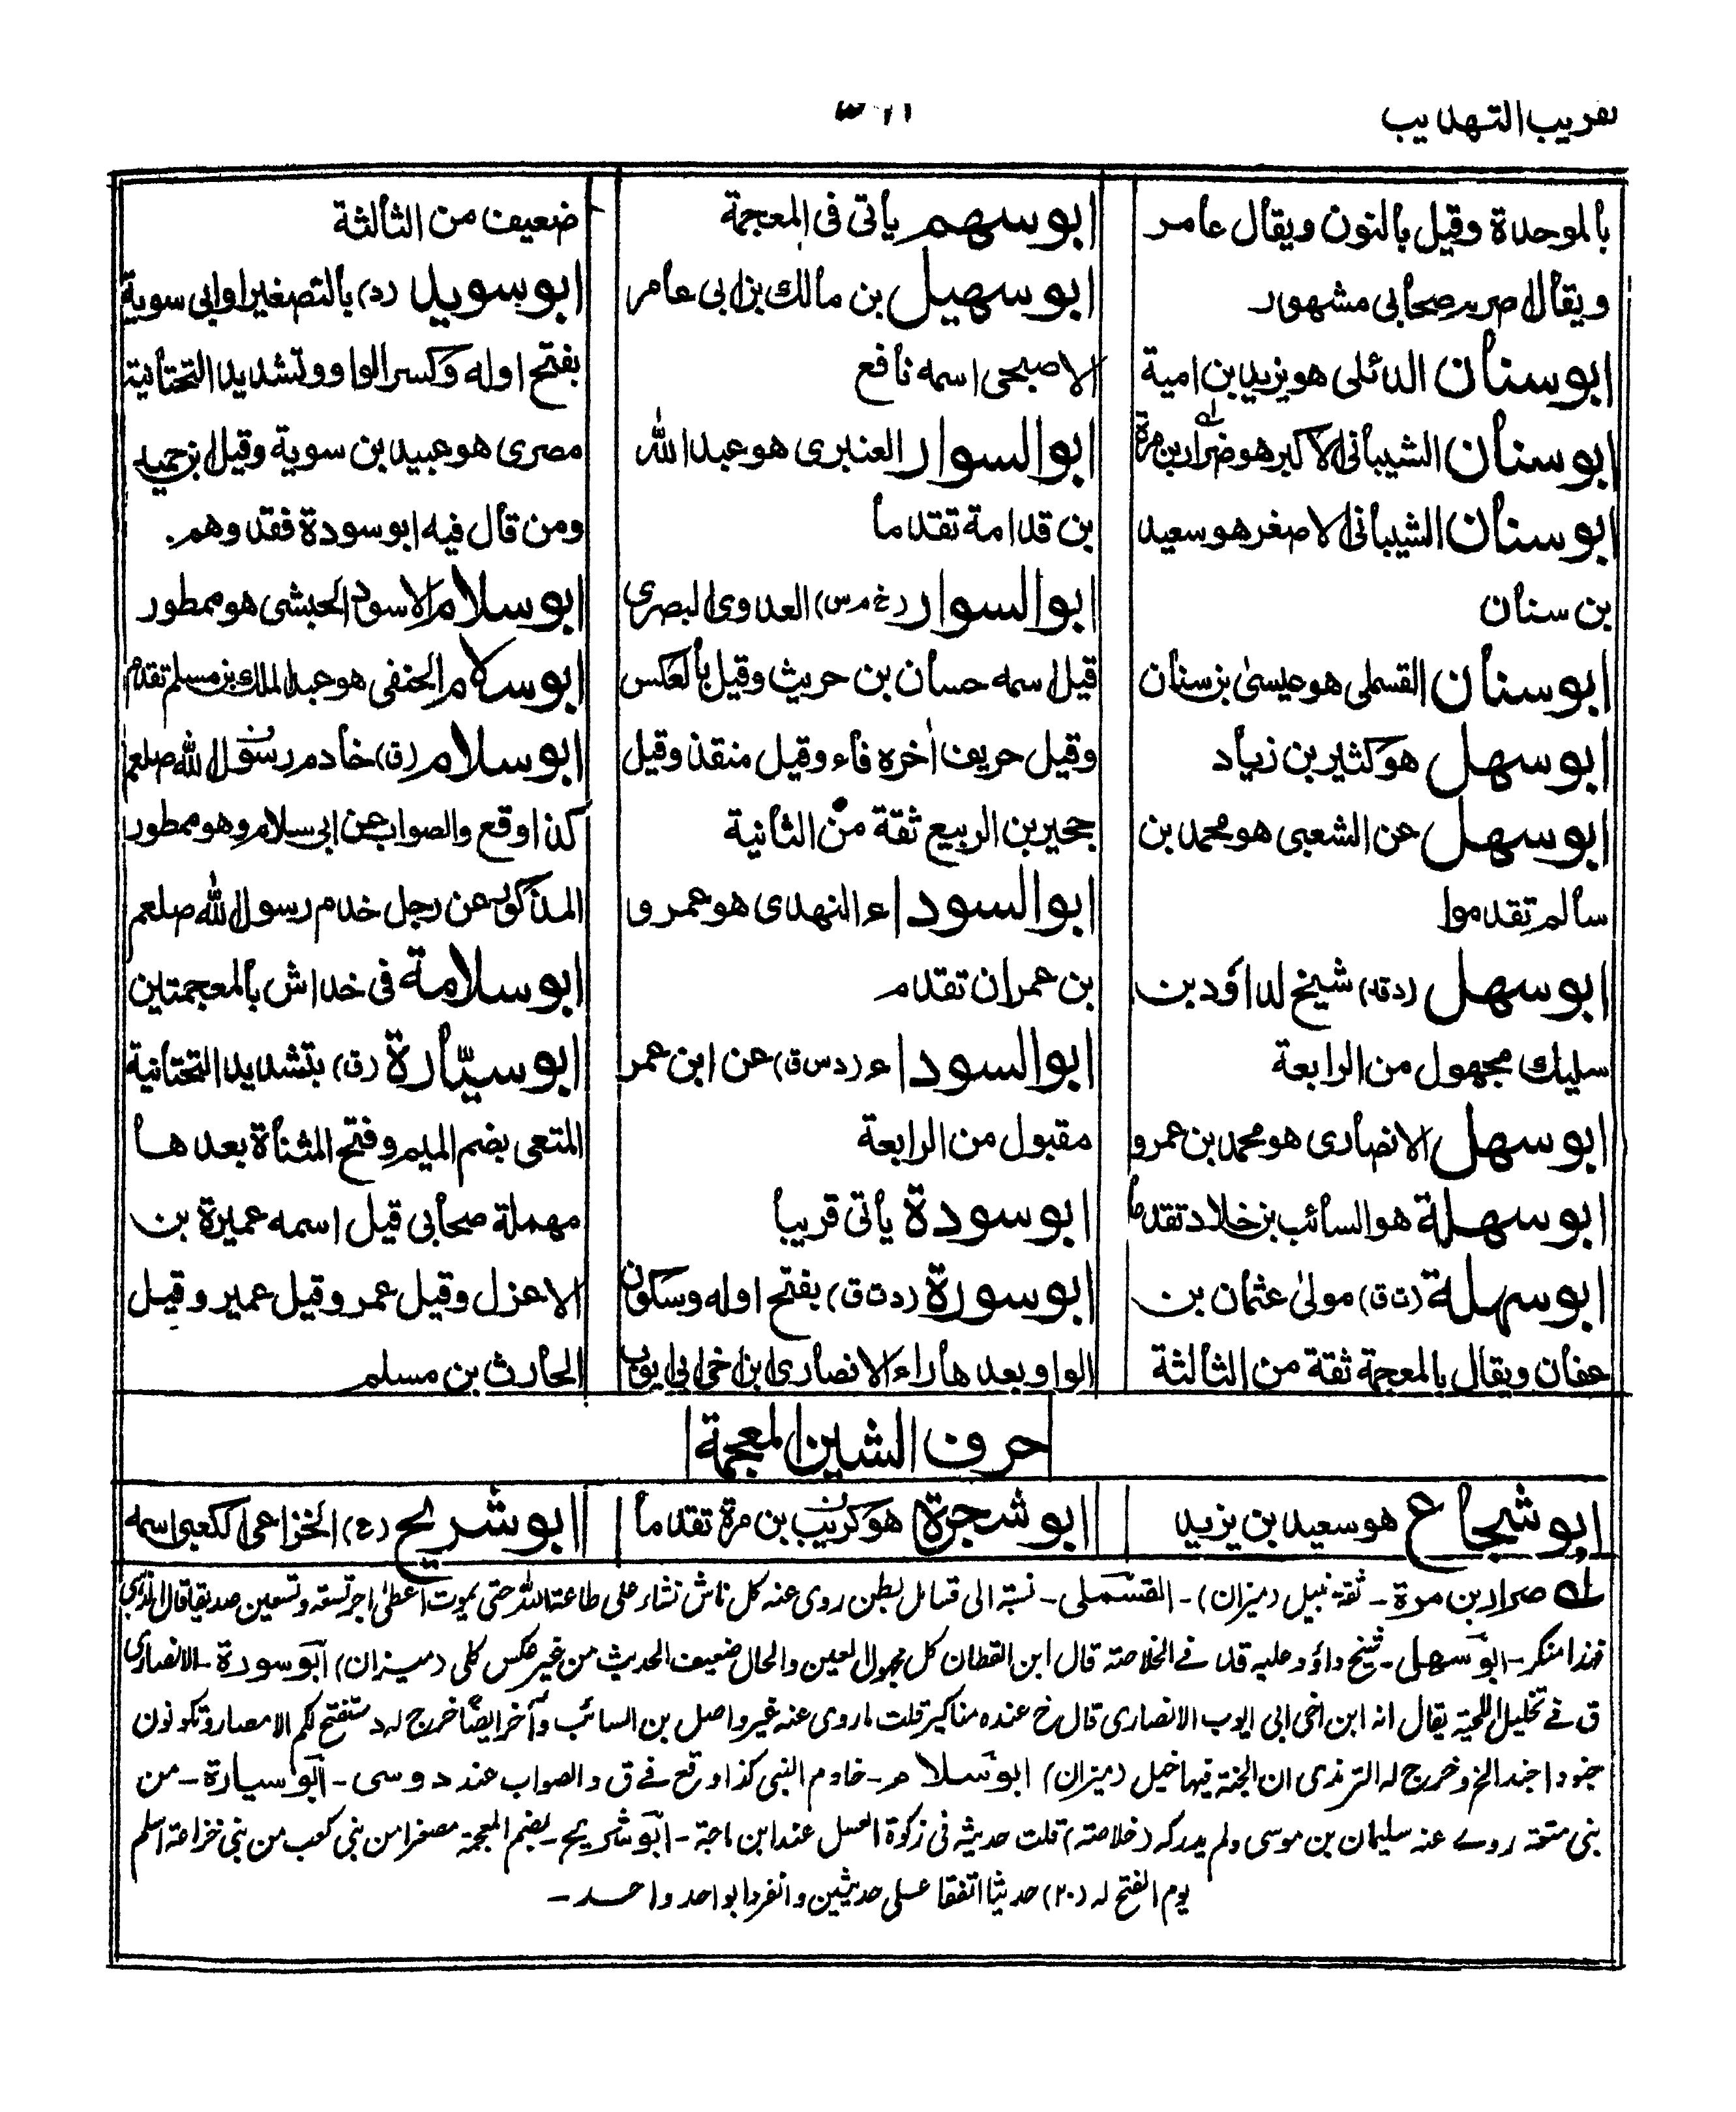 تقريب التهذيب
بالموحدة وقيل بالنون ويقال عامر
ويقال صرمة صحابى مشهور
ابو سنان الدئلى هو يزيد بن امية
ابو سنان الشيبانى الاكبر هو ضرار بن مرة
ابو سنان الشيبانى الاصغر هو سعيد
بن سنان
ابو سنان القسملى هو عيسىٰ بن سنان
ابو سهل هو كثير بن زياد
ابو سهل عن الشعبى هو محمد بن
سالم تقدموا
ابو سهل (دق) شيخ لداؤد بن
سليك مجهول من الرابعة
ابو سهل الانصارى هو محمد بن عمرو
ابو سهلة هو السائب بن خلاد تقدما
ابو سهلة (ت ق) مولىٰ عثمان بن
عفان ويقال بالمعجمة ثقة من الثالثة
ابو سهم ياتى فى المعجمة
ابو سهيل بن مالك بن ابى عامر
الاصبحى اسمه نافع
ابو السوار العنبرى هو عبد الله
بن قدامة تقدما
ابو السوار (خ م س) العدوى البصرى
قيل اسمه حسان بن حريث وقيل بالعكس
وقيل حريف اٰخره فاء وقيل منقذ وقيل
حجير بن الربيع ثقة من الثانية
ابو السوداء النهدى هو عمرو
بن عمران تقدم
ابو السوداء (د س ق) عن ابن عمر
مقبول من الرابعة
ابو سودة ياتى قريبا
ابو سورة (د ت ق) بفتح اوله وسكون
الواو بعدها راء الانصارى ابن اخى ابى ايوب
ضعيف من الثالثة
ابو سويد (د) بالتصغير او ابى سوية
بفتح اوله وكسر الواو وتشديد التحتانية
مصرى هو عبيد بن سوية وقيل ابن حميد
ومن قال فيه ابو سودة فقد وهم.
ابو سلام الاسود الحبشى هو ممطور
ابو سلام الحنفى هو عبد الملك بن مسلم تقدم
ابو سلام (ق) خادم رسول الله صلعم
كذا وقع والصواب عن ابى سلام وهو ممطور
المذكور عن رجل خدم رسول الله صلعم
ابو سلامة فى خداش بالمعجمتين
ابو سيّارة (ق) بتشديد التحتانية
المتعى بضم الميم وفتح المثناة بعدها
مهملة صحابى قيل اسمه عميرة بن
الاعزل وقيل عمرو قيل عمير وقيل
الحارث بن مسلم
حرف الشين المعجمة
ابو شجاع هو سعيد بن يزيد
ابو شجرة هو كريب بن مرة تقدما
ابو شريح (ع) الخزاعى الكعبى اسمه
ضرار بن مرة - ثقة نبيل (ميزان) - القسملى - نسبة الى قسامل بطن روى عنه كل ناش نشاء على طاعة الله حتى يموت اعطى اجر تسعة وتسعين صديقا قال الذهبى
فهذا منكر - ابو سهل - شيخ داؤد عليه قد فى الخلاصة قال ابن القطان كل مجهول العين والحال ضعيف الحديث من غير عكس كلى (ميزان) ابو سورة - الانصارى
ق فى تخليل اللحية يقال انه ابن اخى ابى ايوب الانصارى قال خ عنده مناكير قلت ما روى عنه غير واصل بن السائب وآخر ايضا خرج له د ستفتح لكم الامصار وتكونون
جنودا جند الخ وخرج له الترمذى ان الجنة فيها خيل (ميزان) ابو سلام - خادم النبى كذا وقع فى ق والصواب عند د و سى - ابو سيارة - من
بنى متعة روى عنه سليمان بن موسى ولم يدركه (خلاصة) قلت حديثه فى زكوة العسل عند ابن ماجة - ابو شريح - بضم المعجمة مصغرا من بنى كعب من بنى خزاعة اسلم
يوم الفتح له (٢٠) حديثا اتفقا على حديثين وانفردا بواحد واحد -